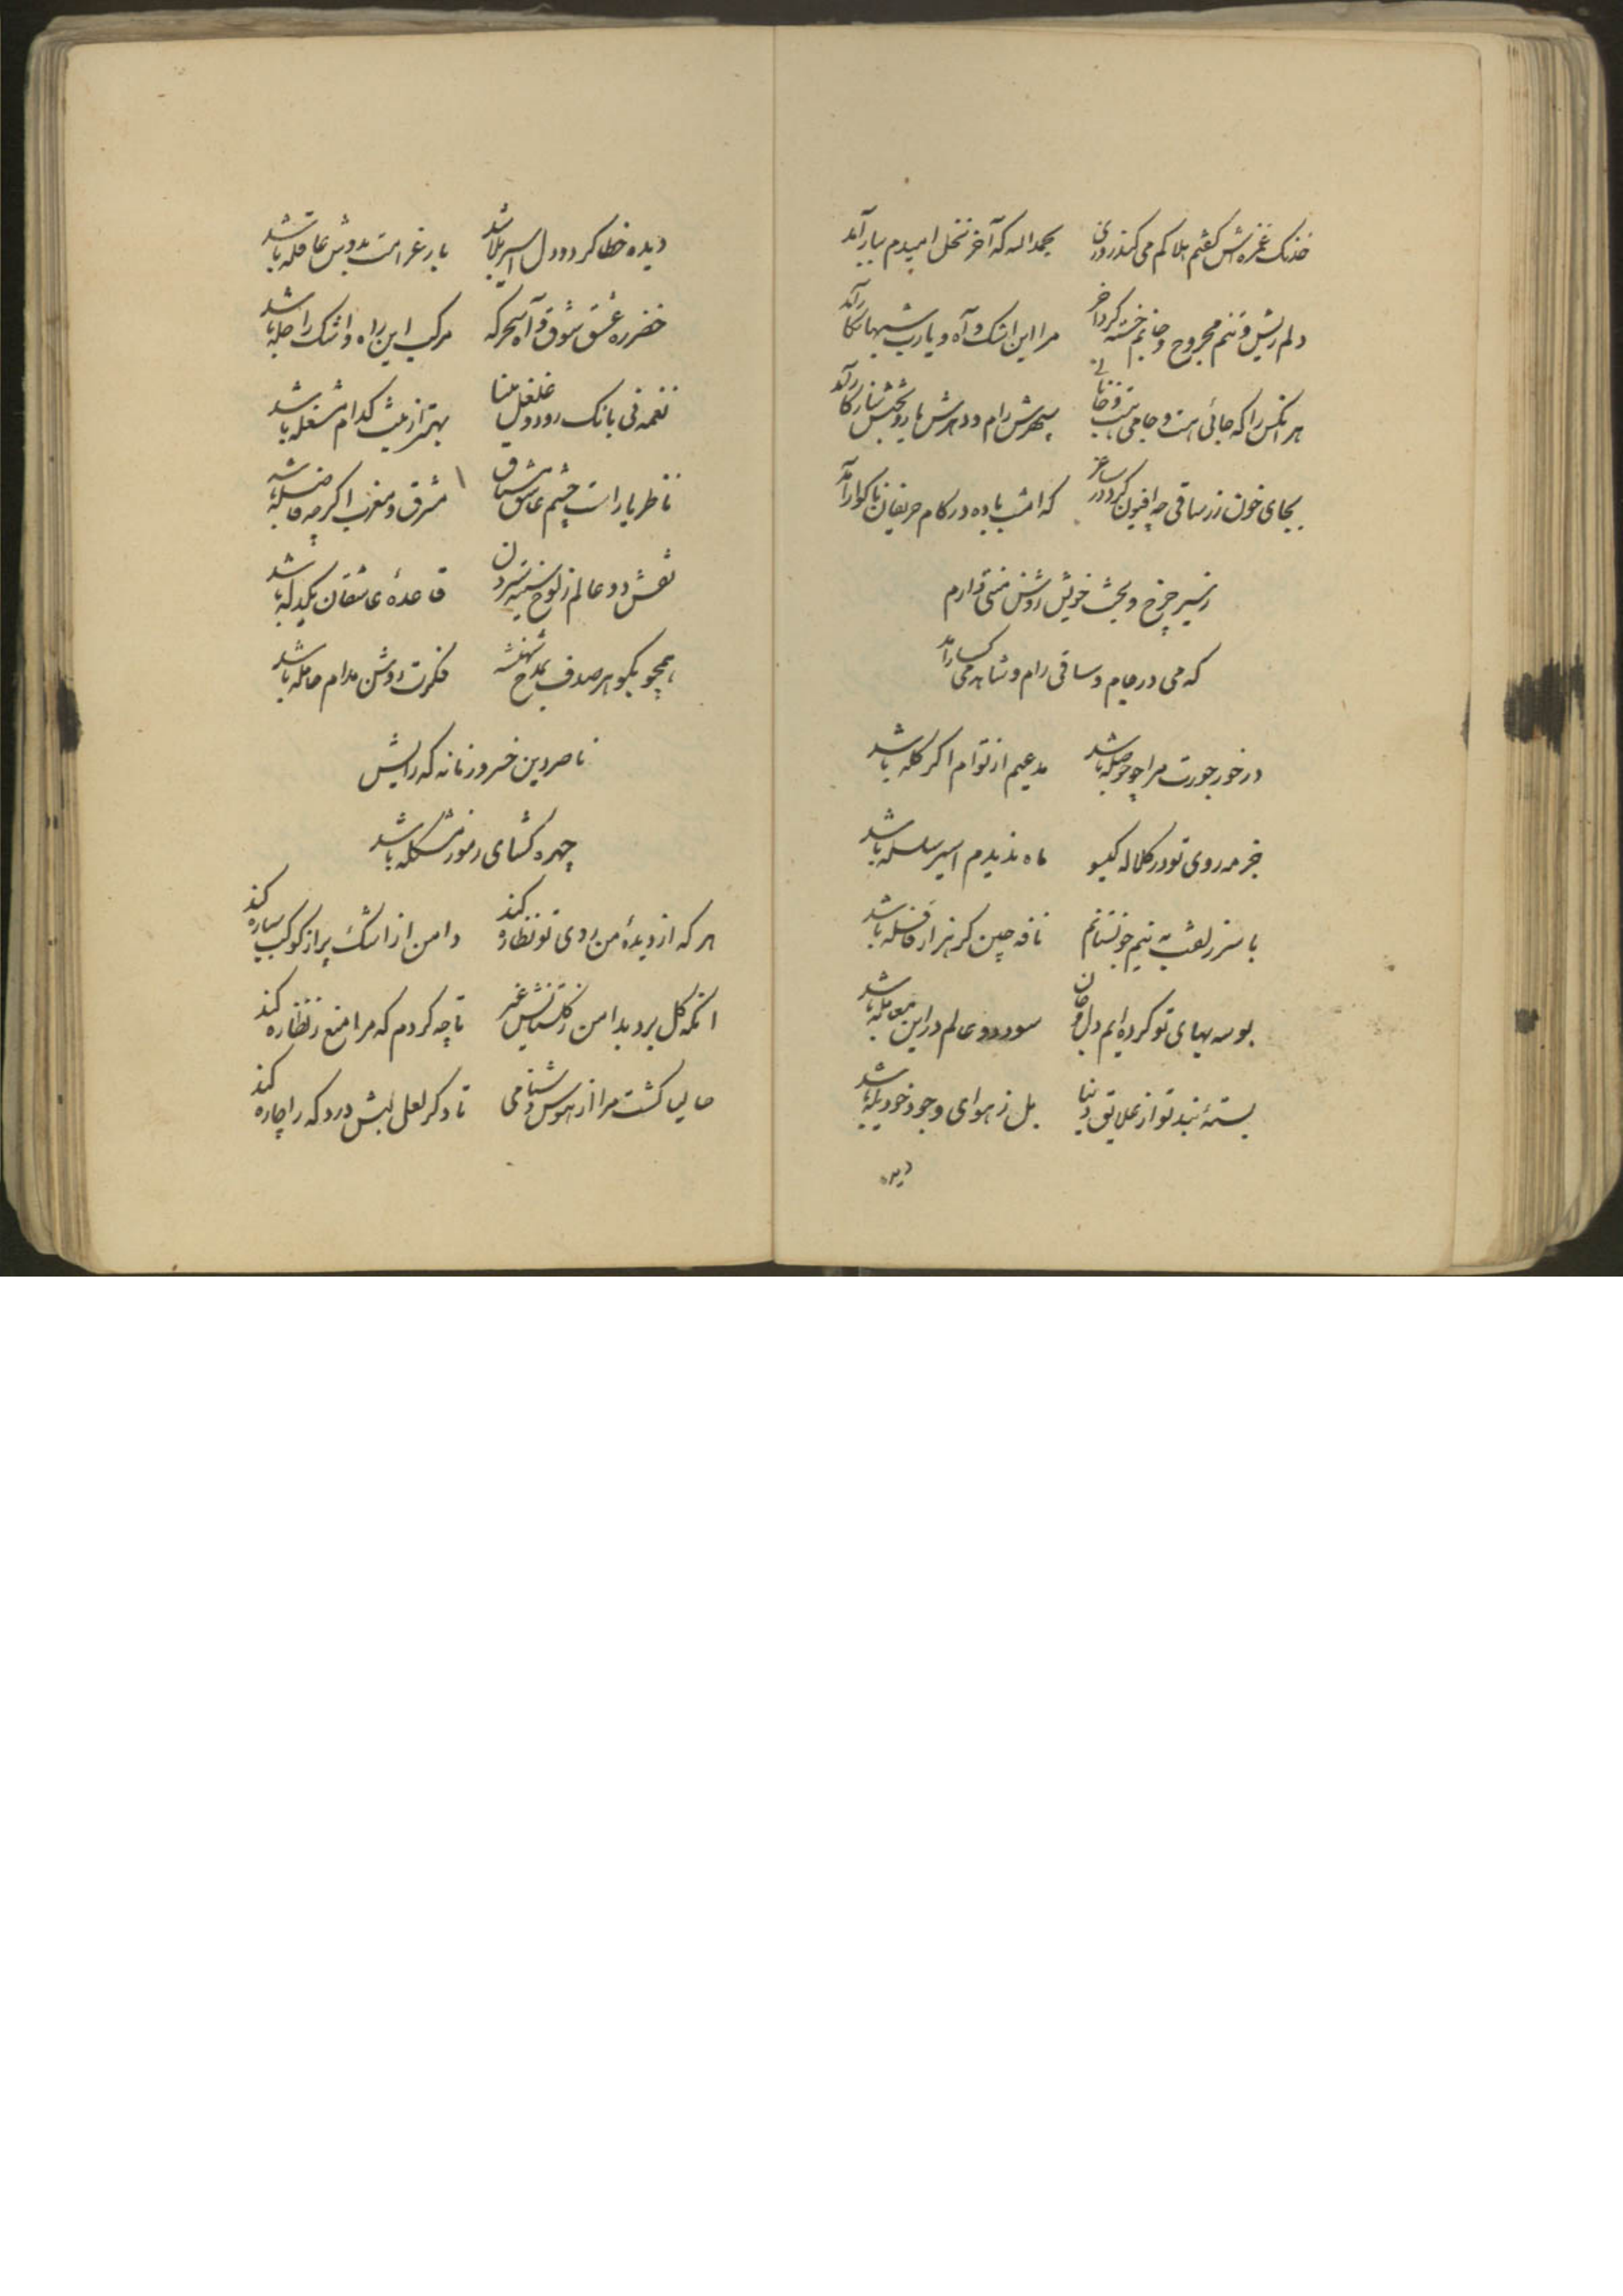 خدنک غمزه‌اش کفتم هلاکم می کند روزی بحمداله که آخر نخل امیدم ببار آمد
دلم ریش و تنم مجروح و جانم خسته کرد آخر مرا این اشک و آه و یارب شبها بکار آمد
هر انکس را که جائی هست و جامی هست سپهرش رام و دهرش یار و بختش سازکار آمد
بجای خون رز ساقی چه افیون کرد در ساغر که امشب باده در کام حریفان ناکوار آمد
ز سیر چرخ و بخت خویش روشن منتی دارم
که می در جام و ساقی رام و شاهد می کسار آمد
در خور جورت مرا چو حوصله باشد مدعیم از توام اکر کله باشد
جز مه روی تو در کلاله کیسو ماه ندیدم اسیر سلسله باشد
با سر زلفت به نیم جو نستانم نافه چین کر هزار قافله باشد
بوسه بهای تو کرده‌ایم دل و جان سود دو عالم در این معامله باشد
بستهٔ بند تو از علایق دنیا بل ز هوای وجود خود یله باشد
دیده
دیده خطا کرد و دل اسیر بلا شد بار غرامت بدوش عاقله باشد
خضر ره عشق شوق و آه سحرکه مرکب این راه و اشک راحله باشد
نغمه نی بانک رود و غلغل مینا بهتر از این کدام مشغله باشد
ناظر یار است چشم عاشق مشتاق مشرق و مغرب اکر چه فاصله باشد
نقش دو عالم ز لوح سینه ستردن قاعدهٔ عاشقان یکدله باشد
همچو بکوهر صدف بمدح شهنشه فکرت روشن مدام حامله باشد
ناصر دین خسرو زمانه که رایش
چهره کشای رموز مشکله باشد
هر که از دیدهٔ من روی تو نظاره کند دامن از اشک پر از کوکب سیاره کند
انکه کل برد بدامن ز کلستانش غیر تا چه کردم که مرا منع ز نظاره کند
حالیا کشت مرا از هوس دشنامی تا دکر لعل لبش درد که را چاره کند